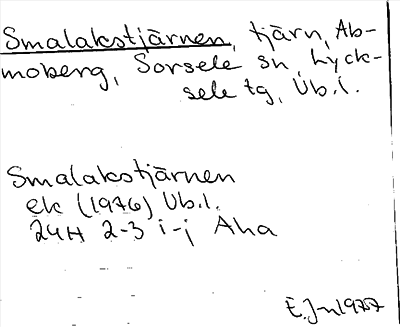 Smalakstjärnen, tjärn, Ab-
moberg, Sorsele sn, Lyck-
sele tg, Vb.l.
Smalakstjärnen
ek (1976) Vb.l.
24H 2-3 i-j Aha
E.J-n 1977